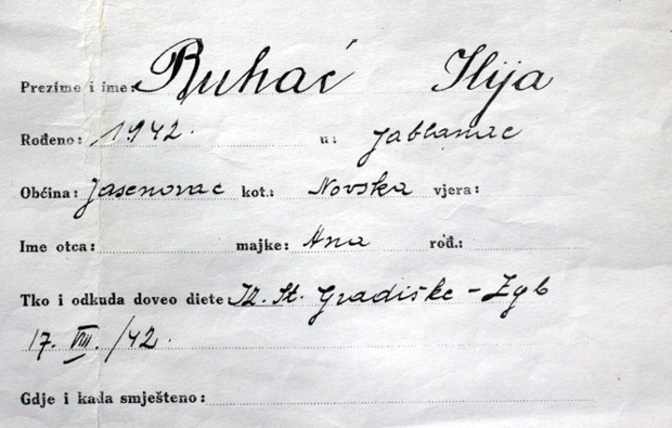 Prezime i ime: Ruhać Ilija
Rođeno: 1942. u: Jablanac
Općina: Jasenovac kot.: Novska vjera:
Ime otca: majke: Ana rođ.:
Tko i odkuda doveo diete Iz. St. Gradiške - Zgb
17. VIII. /42.
Gdje i kada smješteno: